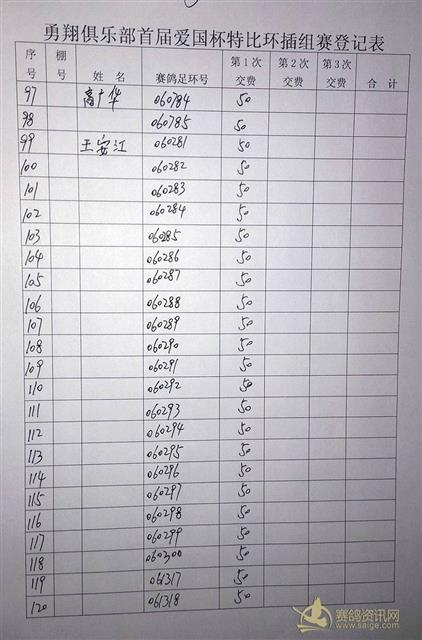 勇翔俱乐部首届爱国杯特比环插组赛登记表
序号 棚号 姓名 赛鸽足环号 第1次交费 第2次交费 第3次交费 合计
97 高广华 060784 50
98 060785 50
99 王安江 060281 50
100 060282 50
101 060283 50
102 060284 50
103 060285 50
104 060286 50
105 060287 50
106 060288 50
107 060289 50
108 060290 50
109 060291 50
110 060292 50
111 060293 50
112 060294 50
113 060295 50
114 060296 50
115 060297 50
116 060298 50
117 060299 50
118 060300 50
119 061317 50
120 061318 50
赛鸽资讯网
www.saige.com